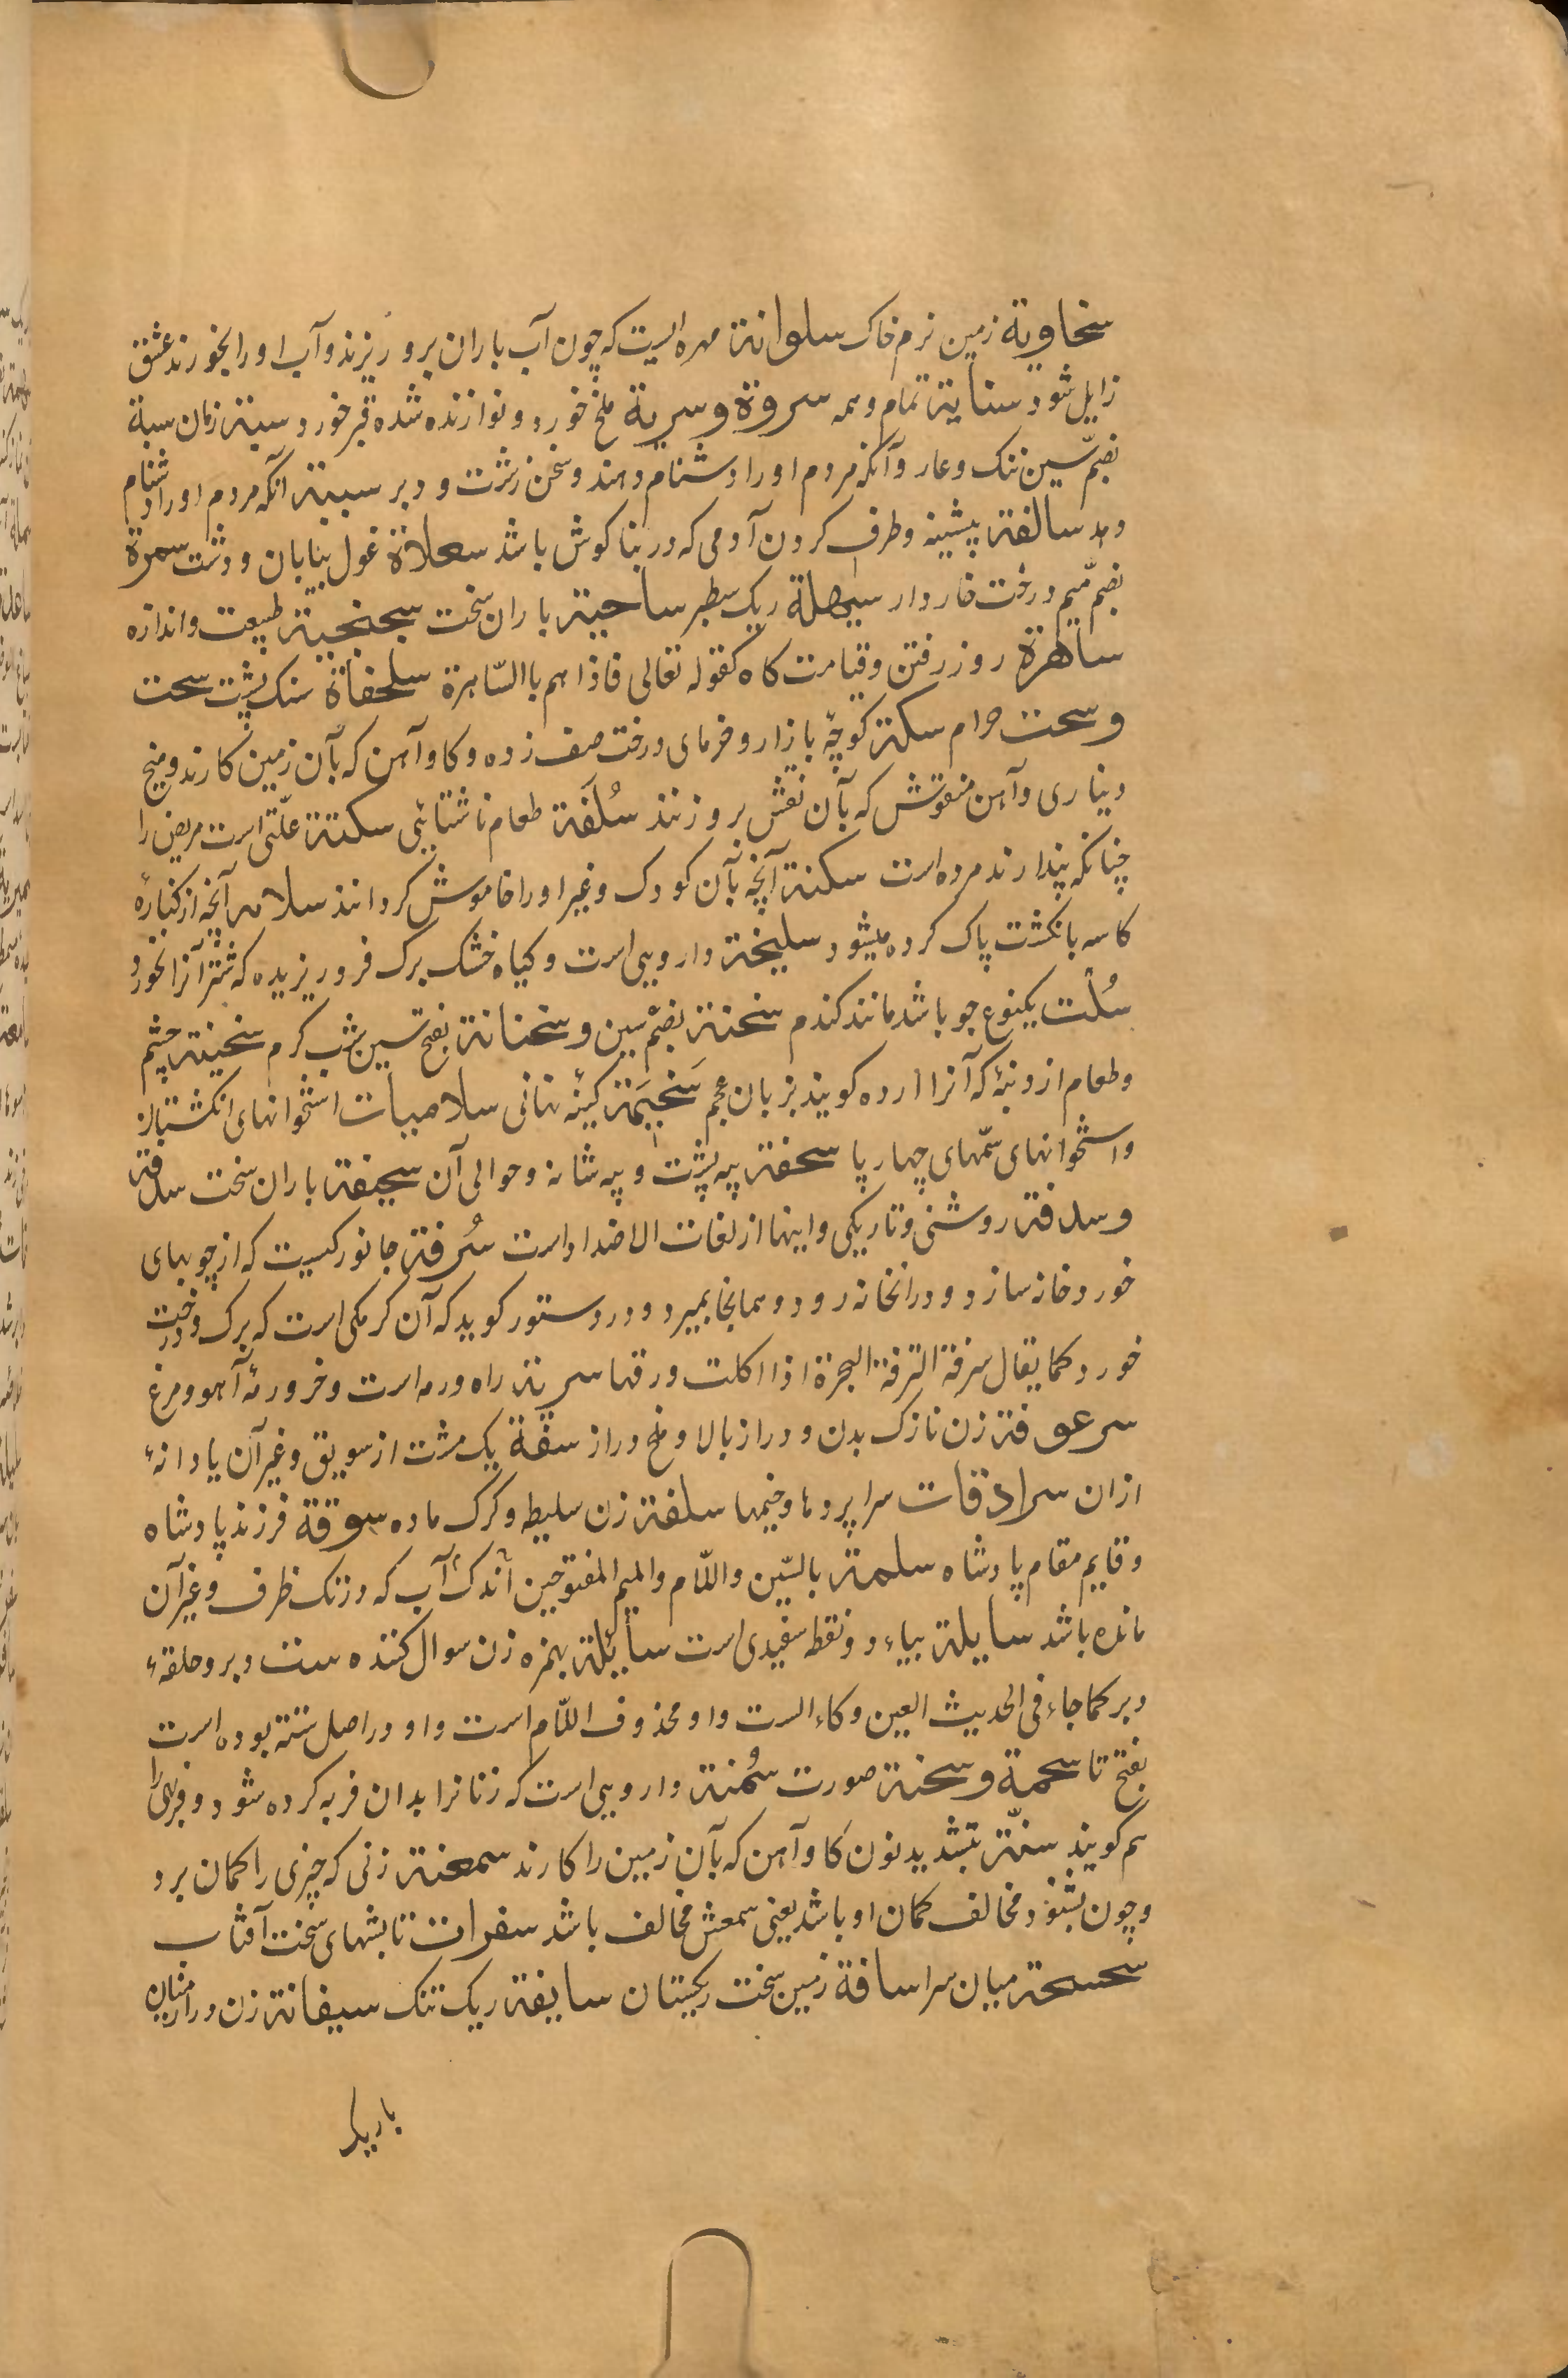 سخاویة زمین نرم خاک سلوانة مهره ایست که چون آب باران برو ریزند و آب او را بخورند عشق
زایل شود سنایة تمام و همه سروة و سریة ملخ خورد و نوازنده شده تیر خورد سبة زمان سبة
بضم سین ننک و عار و آنکه مردم او را دشنام دهند و سخن زشت و دبر سببة آنکه مردم او را دشنام
دهد سالفة پیشینه و طرف کردن آدمی که در بنا کوش باشد سعلاة غول بیابان و دشت سمرة
بضم میم درخت خاردار سبهلة ریک سطبر ساحیة باران سخت سجنجیة طبیعت و اندازه
ساهرة روز رفتن و قیامت کاه کقوله تعالی فاذا هم بالسّاهرة سلحفاة سنک پشت سحت
و سحت حرام سکة کوچهٔ بازار و خرمای درخت صف زده و کاو آهن که بآن زمین کارند و میخ
دیناری و آهن منقوش که بآن نقش برو زنند سُلفَة طعام ناشتایی سکتة علّتی است مریض را
چنانکه پندارند مرده است سکتة آنچه بآن کودک و غیر او را خاموش کردانند سلامه آنچه از کنارهٔ
کاسه بانکشت پاک کرده میشود سلیخة دارویی است و کیاه خشک برک فرو ریزیده که شتر آنرا نخورد
سُلْت یکنوع جو باشد مانند کندم سخنة بضم سین و سخنانة بفتح سین شب کرم سخینة چشم
و طعام از دنبه که آنرا آرده کویند بزبان عجم سَخیمَة کینهٔ نهانی سلامیات استخوانهای انکشتان
و استخوانهای سمّهای چهارپا سحفة پیه پشت و پیه شانه و حوالی آن سحیفة باران سخت سدفة
و سدفة روشنی و تاریکی و اینها از لغات الاضداد است سُرفة جانورکیست که از چوبهای
خورد خانه سازد و در انخانه رود و همانجا بمیرد و در دستور کوید که آن کرمکی است که برک درخت
خورد کما یقال سرفة السرفة الشجرة اذا اکلت ورقها سربة راه و رمه است و خر و رمهٔ آهو و مرغ
سرعوفة زن نازک بدن و دراز بالا و ملخ دراز سفّة یک مشت از سویق و غیر آن یا دانهٔ
ازان سرادقات سراپردها و خیمها سلفة زن سلیطه و کرک ماده سوقة فرزند پادشاه
و قایم مقام پادشاه سلمة بالسّین و اللّام و المیم المفتوحین اندک آب که در تک ظرف و غیر آن
مانده باشد سایلة بیاء دو نقطه سفیدی است سائلة بهمزه زن سوال کننده ست دبر و حلقهٔ
دبر کما جاء فی الحدیث العین وکاء الست و او محذوف اللّام است و او در اصل سته بوده است
بفتح تا سحمة و سحنة صورت سُمنة دارویی است که زنانرا بدان فربه کرده شود و فربهی را
هم کویند سنّة بتشدید نون کاو آهن که بآن زمین را کارند سمعنة زنی که چیزی را کمان برد
و چون بشنود مخالف کمان او باشد یعنی سمعش مخالف باشد سفرات تابشهای سخت آفتاب
سحسحة میان سرا سافة زمین سخت ریکستان سایفة ریک تنک سیفانة زن دراز میان
باریک